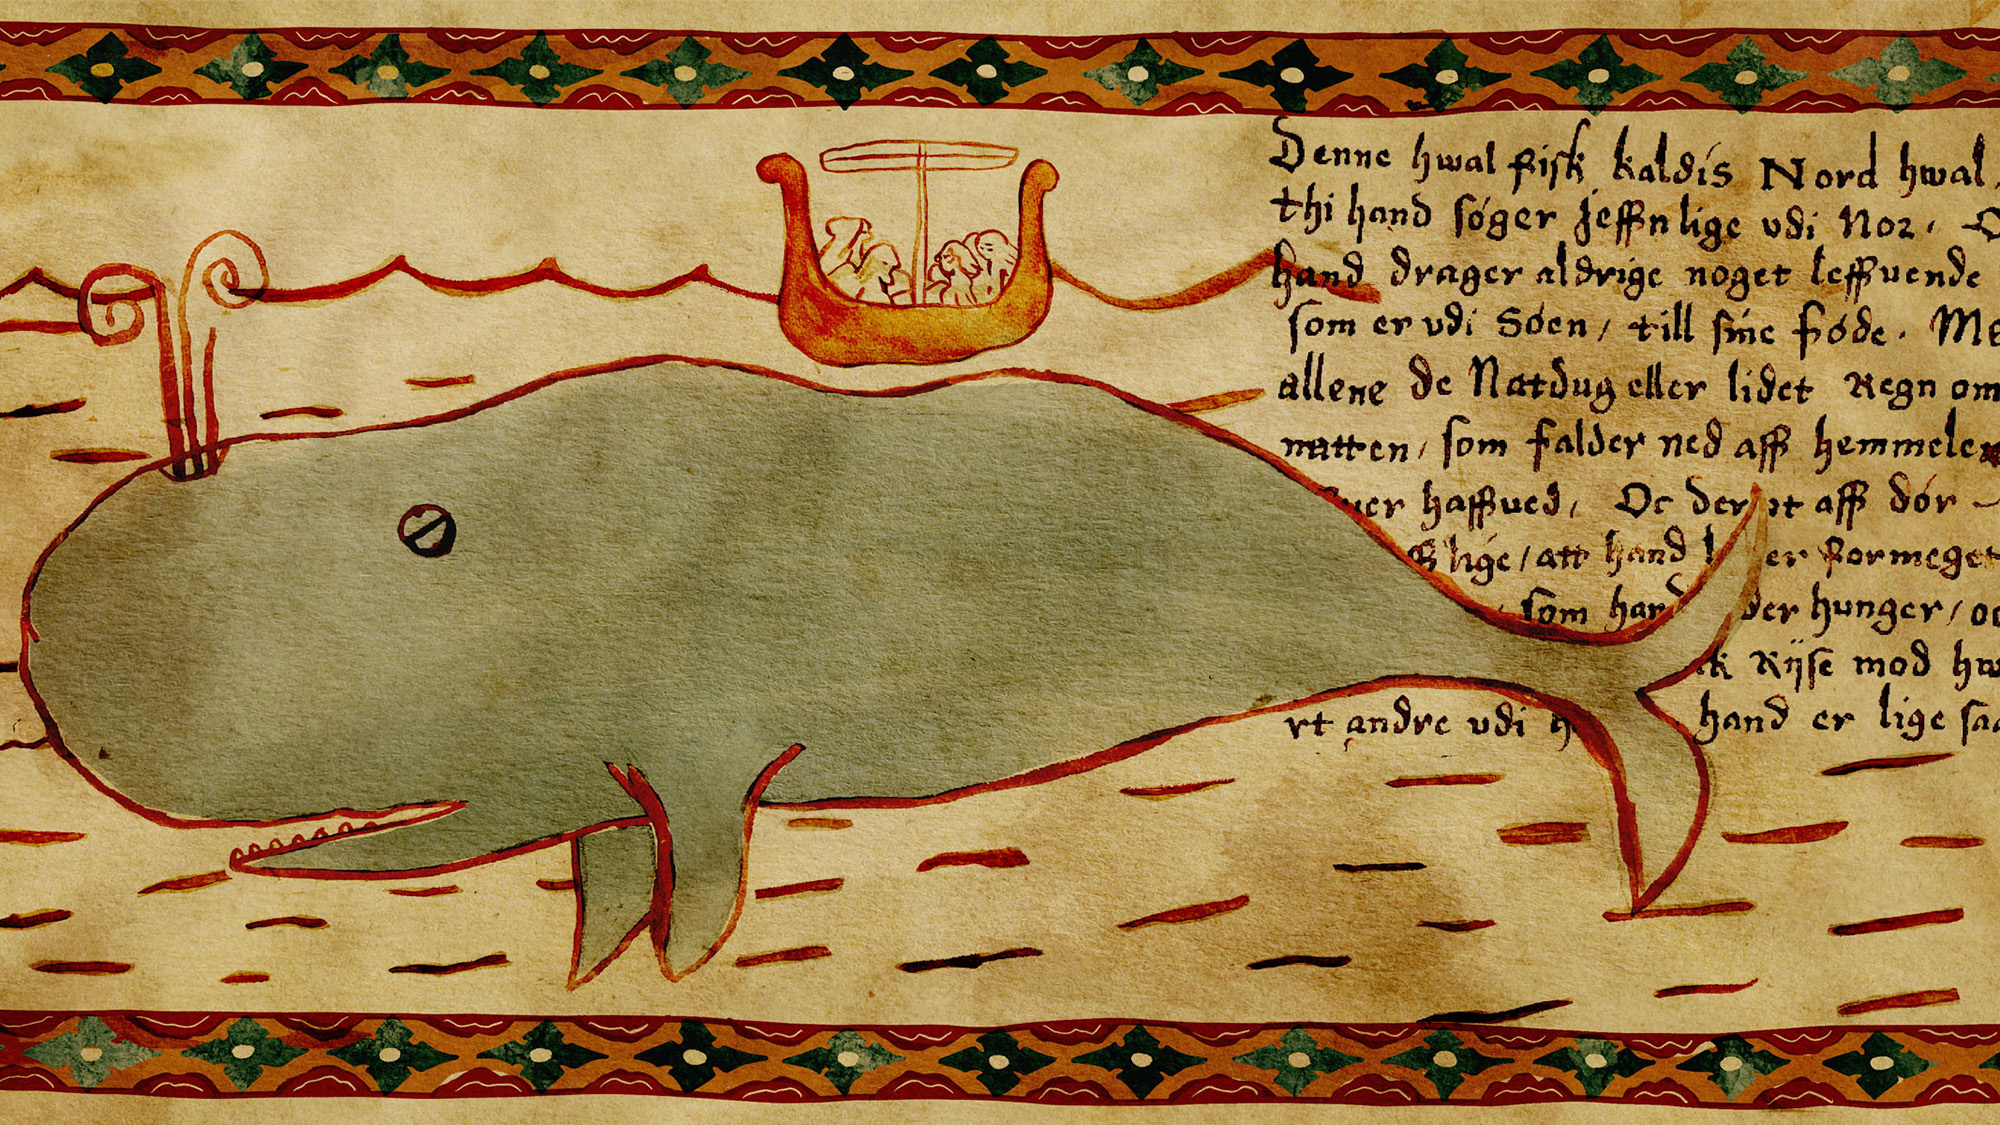 Denne hwal fisk kaldis Nord hwal,
thi hand søger Jeffnlige vdi Nor, O
hand drager aldrige noget leffuende
som er vdi Søen / till sine føde. Me
allene de Natdug eller lidet Regn om
natten / som falder ned aff hemmelen
haffued, Oc der aff dør
lige / att hand formeget
som hand hunger / oc
Rijse mod hw
andre vdi hand er lige saa